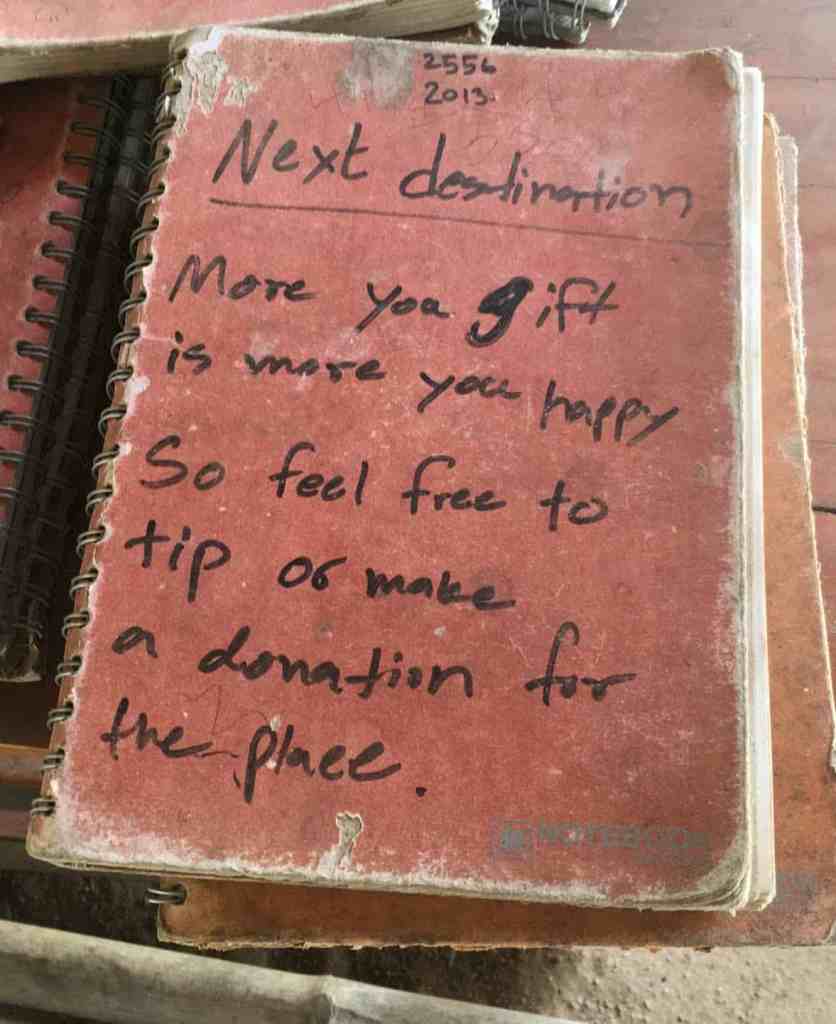 2556
2013.
Next destination
More you gift
is more you happy
So feel free to
tip or make
a donation for
the place.
NOTEBOOK